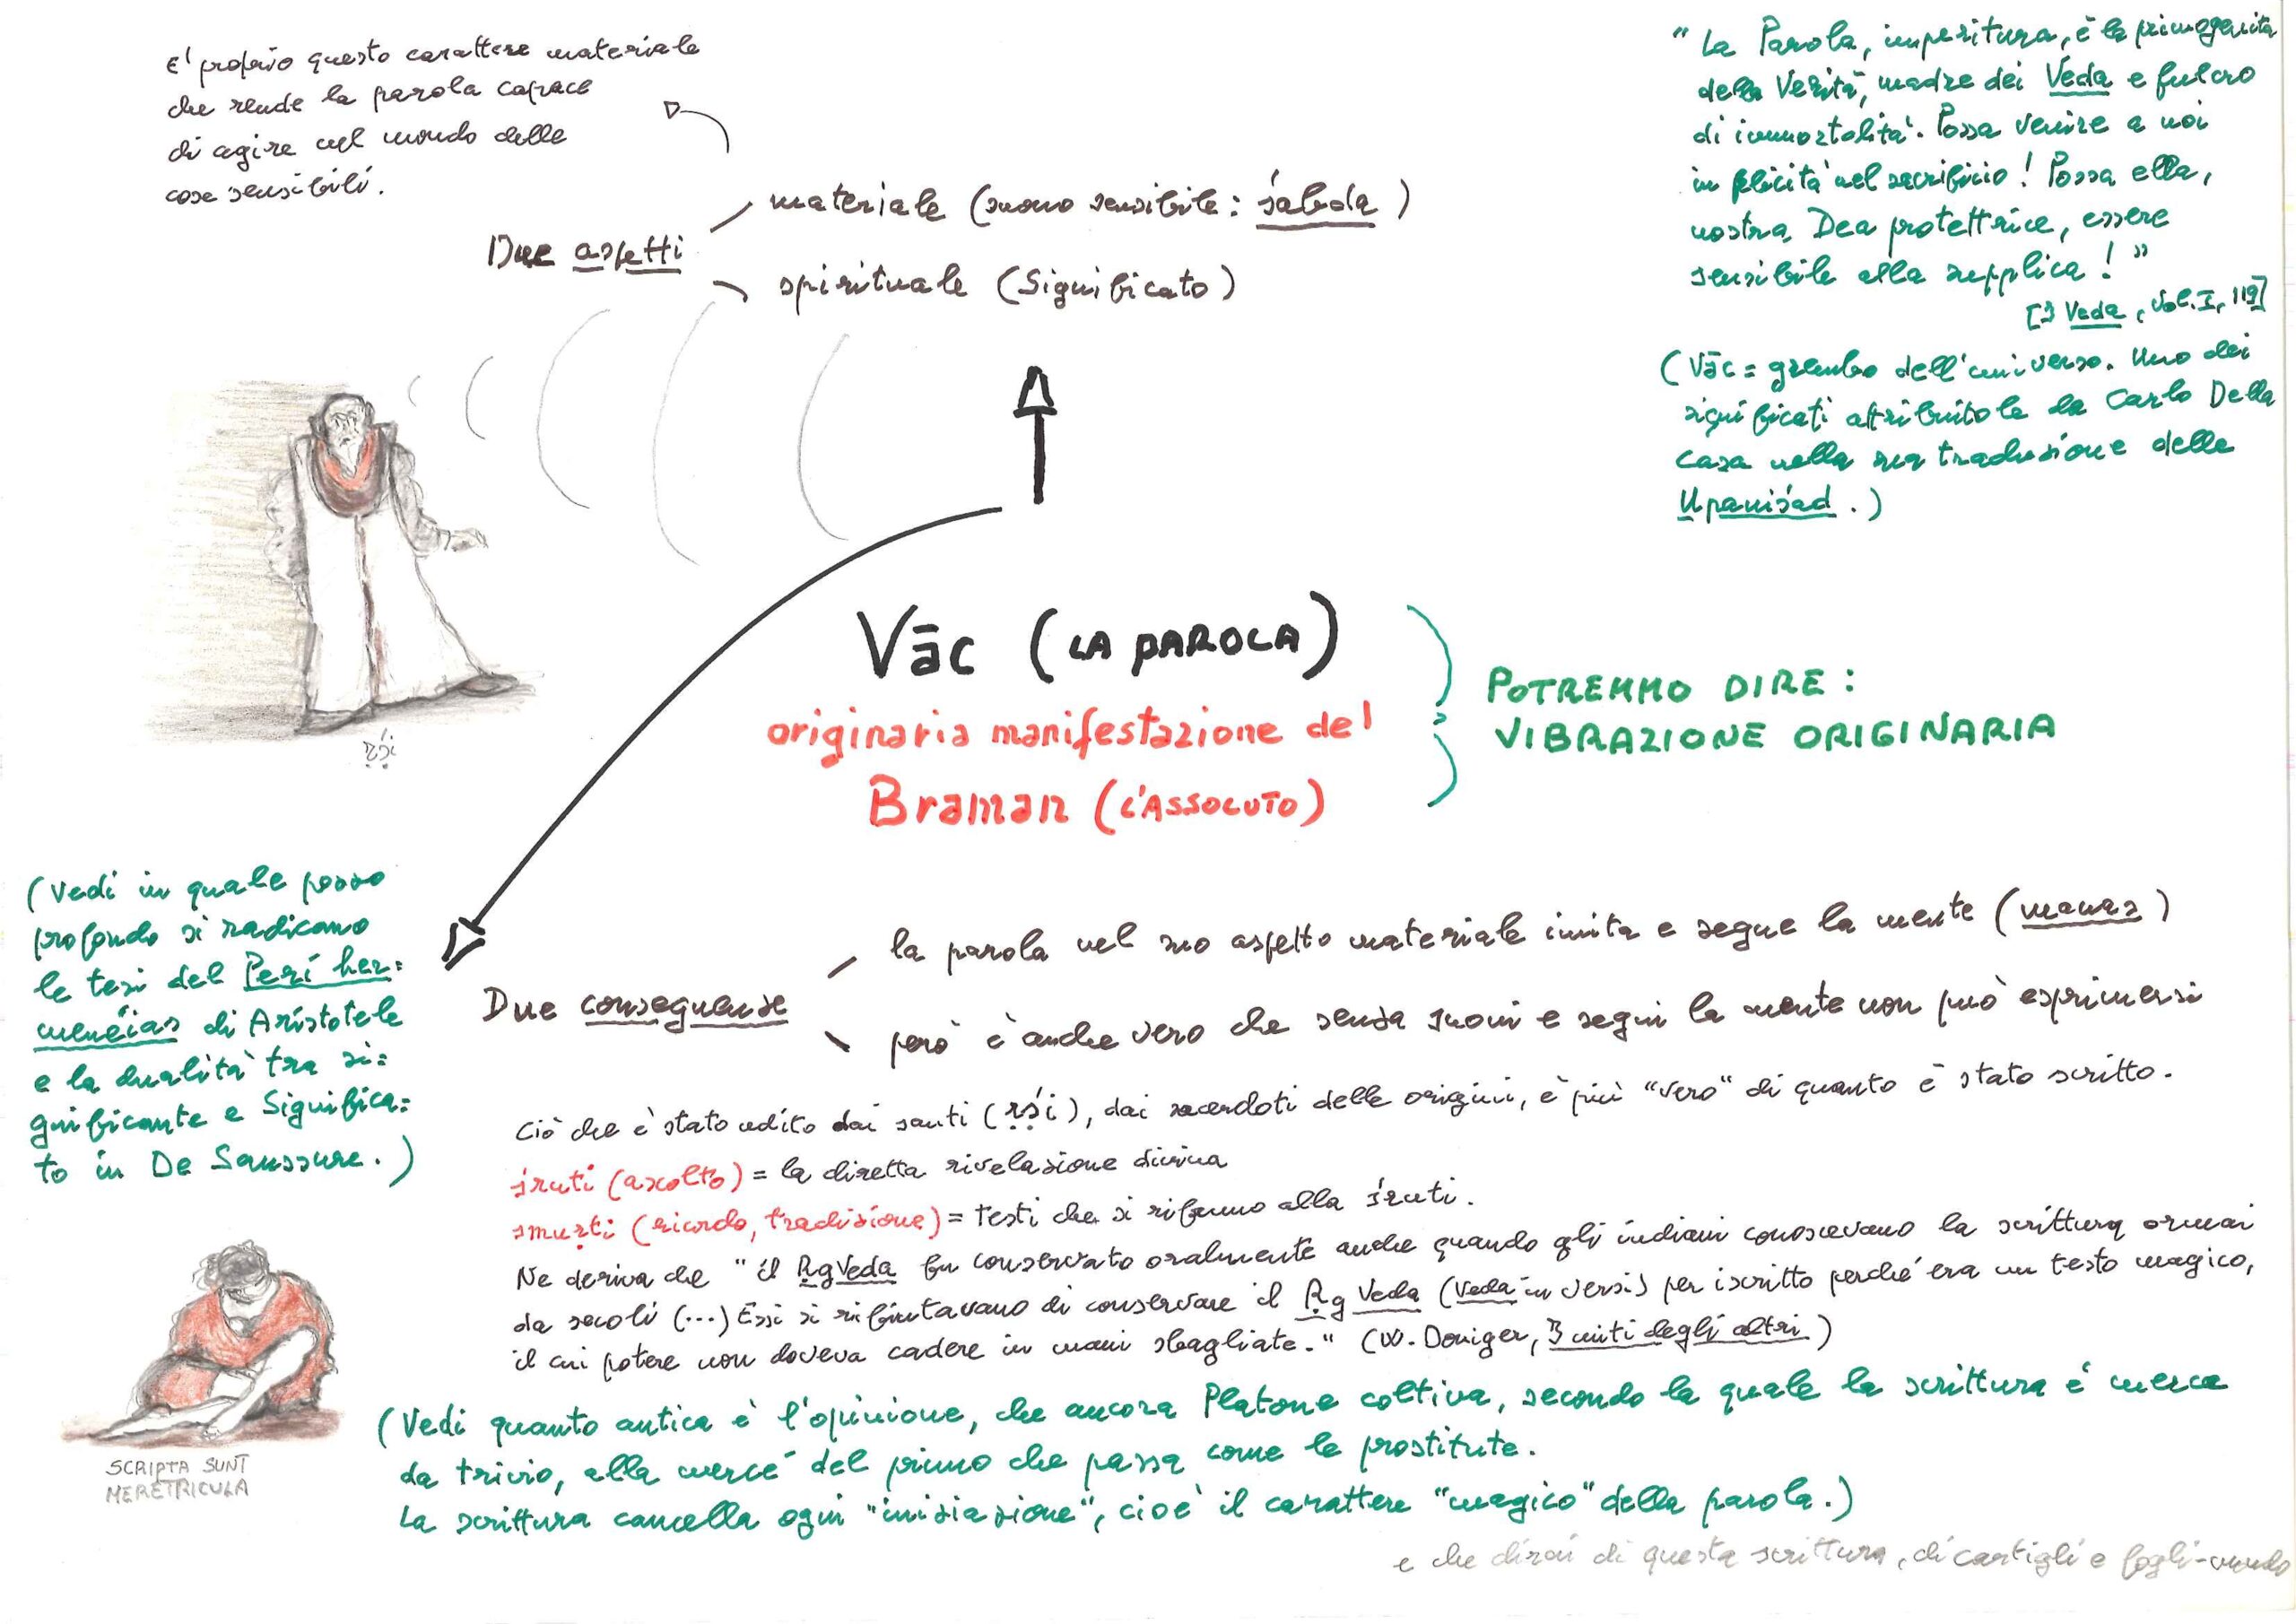 E' proprio questo carattere materiale
che rende la parola capace
di agire nel mondo delle
cose sensibili.
Due aspetti
materiale (suono sensibile: śabda)
spirituale (Significato)
"La Parola, imperitura, è la primogenita
della Verità, madre dei Veda e fulcro
di immortalità. Possa venire a noi
in felicità nel sacrificio! Possa ella,
nostra Dea protettrice, essere
sensibile alla supplica!"
[I Veda, Vol. I, 119]
(Vāc = grembo dell'universo. Uno dei
significati attribuitole da Carlo Della
Casa nella sua traduzione delle
Upaniṣad.)
ṛṣi
Vāc (LA PAROLA)
originaria manifestazione del
Braman (L'ASSOLUTO)
POTREMMO DIRE:
VIBRAZIONE ORIGINARIA
(Vedi in quale posso
profondo si radicano
le tesi del Perí her=
meneías di Aristotele
e la dualità tra si=
gnificante e Significa=
to in De Saussure.)
Due conseguenze
la parola nel suo aspetto materiale imita e segue la mente (manas)
però è anche vero che senza suoni e segni la mente non può esprimersi
Ciò che è stato udito dai santi (ṛṣi), dai sacerdoti delle origini, è più "vero" di quanto è stato scritto.
śruti (ascolto) = la diretta rivelazione divina
smṛti (ricordo, tradizione) = testi che si rifanno alla śruti.
Ne deriva che "il Ṛg Veda fu conservato oralmente anche quando gli indiani conoscevano la scrittura ormai
da secoli (...) Essi si rifiutavano di conservare il Ṛg Veda (Veda in versi) per iscritto perché era un testo magico,
il cui potere non doveva cadere in mani sbagliate." (W. Doniger, I miti degli altri)
(Vedi quanto antica è l'opinione, che ancora Platone coltiva, secondo la quale la scrittura è merce
da trivio, alla mercé del primo che passa come le prostitute.
La scrittura cancella ogni "iniziazione", cioè il carattere "magico" della parola.)
SCRIPTA SUNT
MERETRICULA
e che dirai di questa scrittura, di cartigli e fogli-mondo